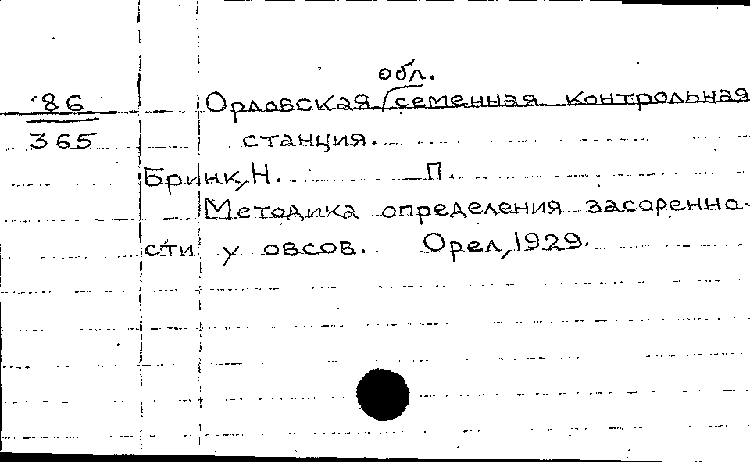 обл.
86 Орловская семенная контрольная
365 станция.
Бринк, Н. П.
Методика определения засоренно-
сти у овсов. Орел, 1929.